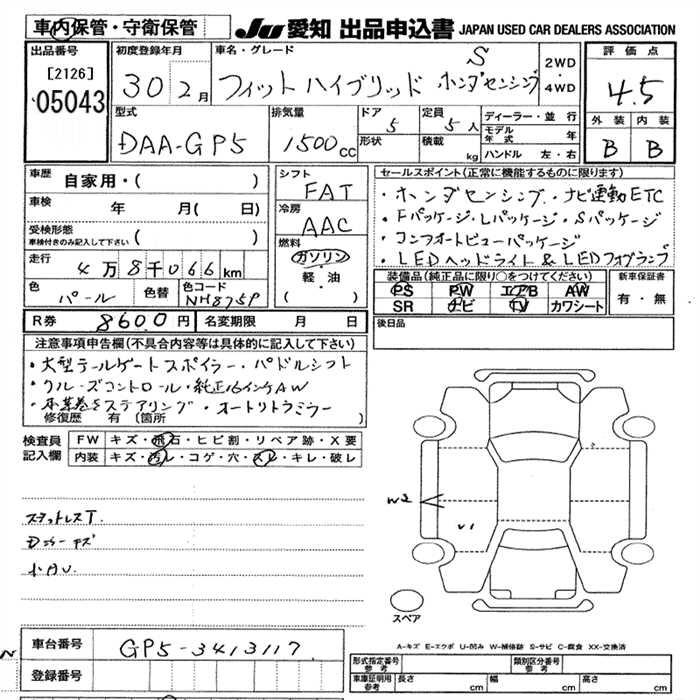 車内保管・守衛保管
JU 愛知 出品申込書 JAPAN USED CAR DEALERS ASSOCIATION
出品番号
[2126]
05043
初度登録年月
30 2月
車名・グレード
S
フィットハイブリッド ホンダセンシング
2WD
・
4WD
評価点
4.5
外装 内装
B B
型式
DAA-GP5
排気量
1500cc
ドア
5
形状
定員
5人
積載
kg
ディーラー・並行
モデル年式 年
ハンドル 左・右
車歴
自家用・( )
車検
年 月( 日)
受検形態
車検付きのみ記入して下さい ( )
走行
4万8千066km
色
パール
色替
色コード
NH875P
シフト
FAT
冷房
AAC
燃料
ガソリン
軽・油
( )
セールスポイント(正常に機能するものに限ります)
・ホンダセンシング・ナビ連動ETC
・Fパッケージ・Lパッケージ・Sパッケージ
・コンフォートビューパッケージ
・LEDヘッドライト&LEDフォグランプ
装備品(純正品に限り○をつけてください)
PS PW エアB AW
SR ナビ TV カワシート
新車保証書
有・無
R券 8600円 名変期限 月 日
後日品
注意事項申告欄(不具合内容等は具体的に記入して下さい)
・大型テールゲートスポイラー・パドルシフト
・クルーズコントロール・純正16インチAW
・本革巻きステアリング・オートリトラミラー
修復歴 有 (箇所 )
検査員
記入欄
FW キズ・飛石・ヒビ割・リペア跡・X要
内装 キズ・汚レ・コゲ・穴・スレ・キレ・破レ
スタットレスT.
小キズ
W2
U1
スペア
A-キズ E-エクボ U-凹み W-補修跡 S-サビ C-腐食 XX-交換済
車台番号 GP5-3413117
登録番号
形式指定番号
参考
類別区分番号
参考
車庫証明用
参考
長さ cm 幅 cm 高さ cm